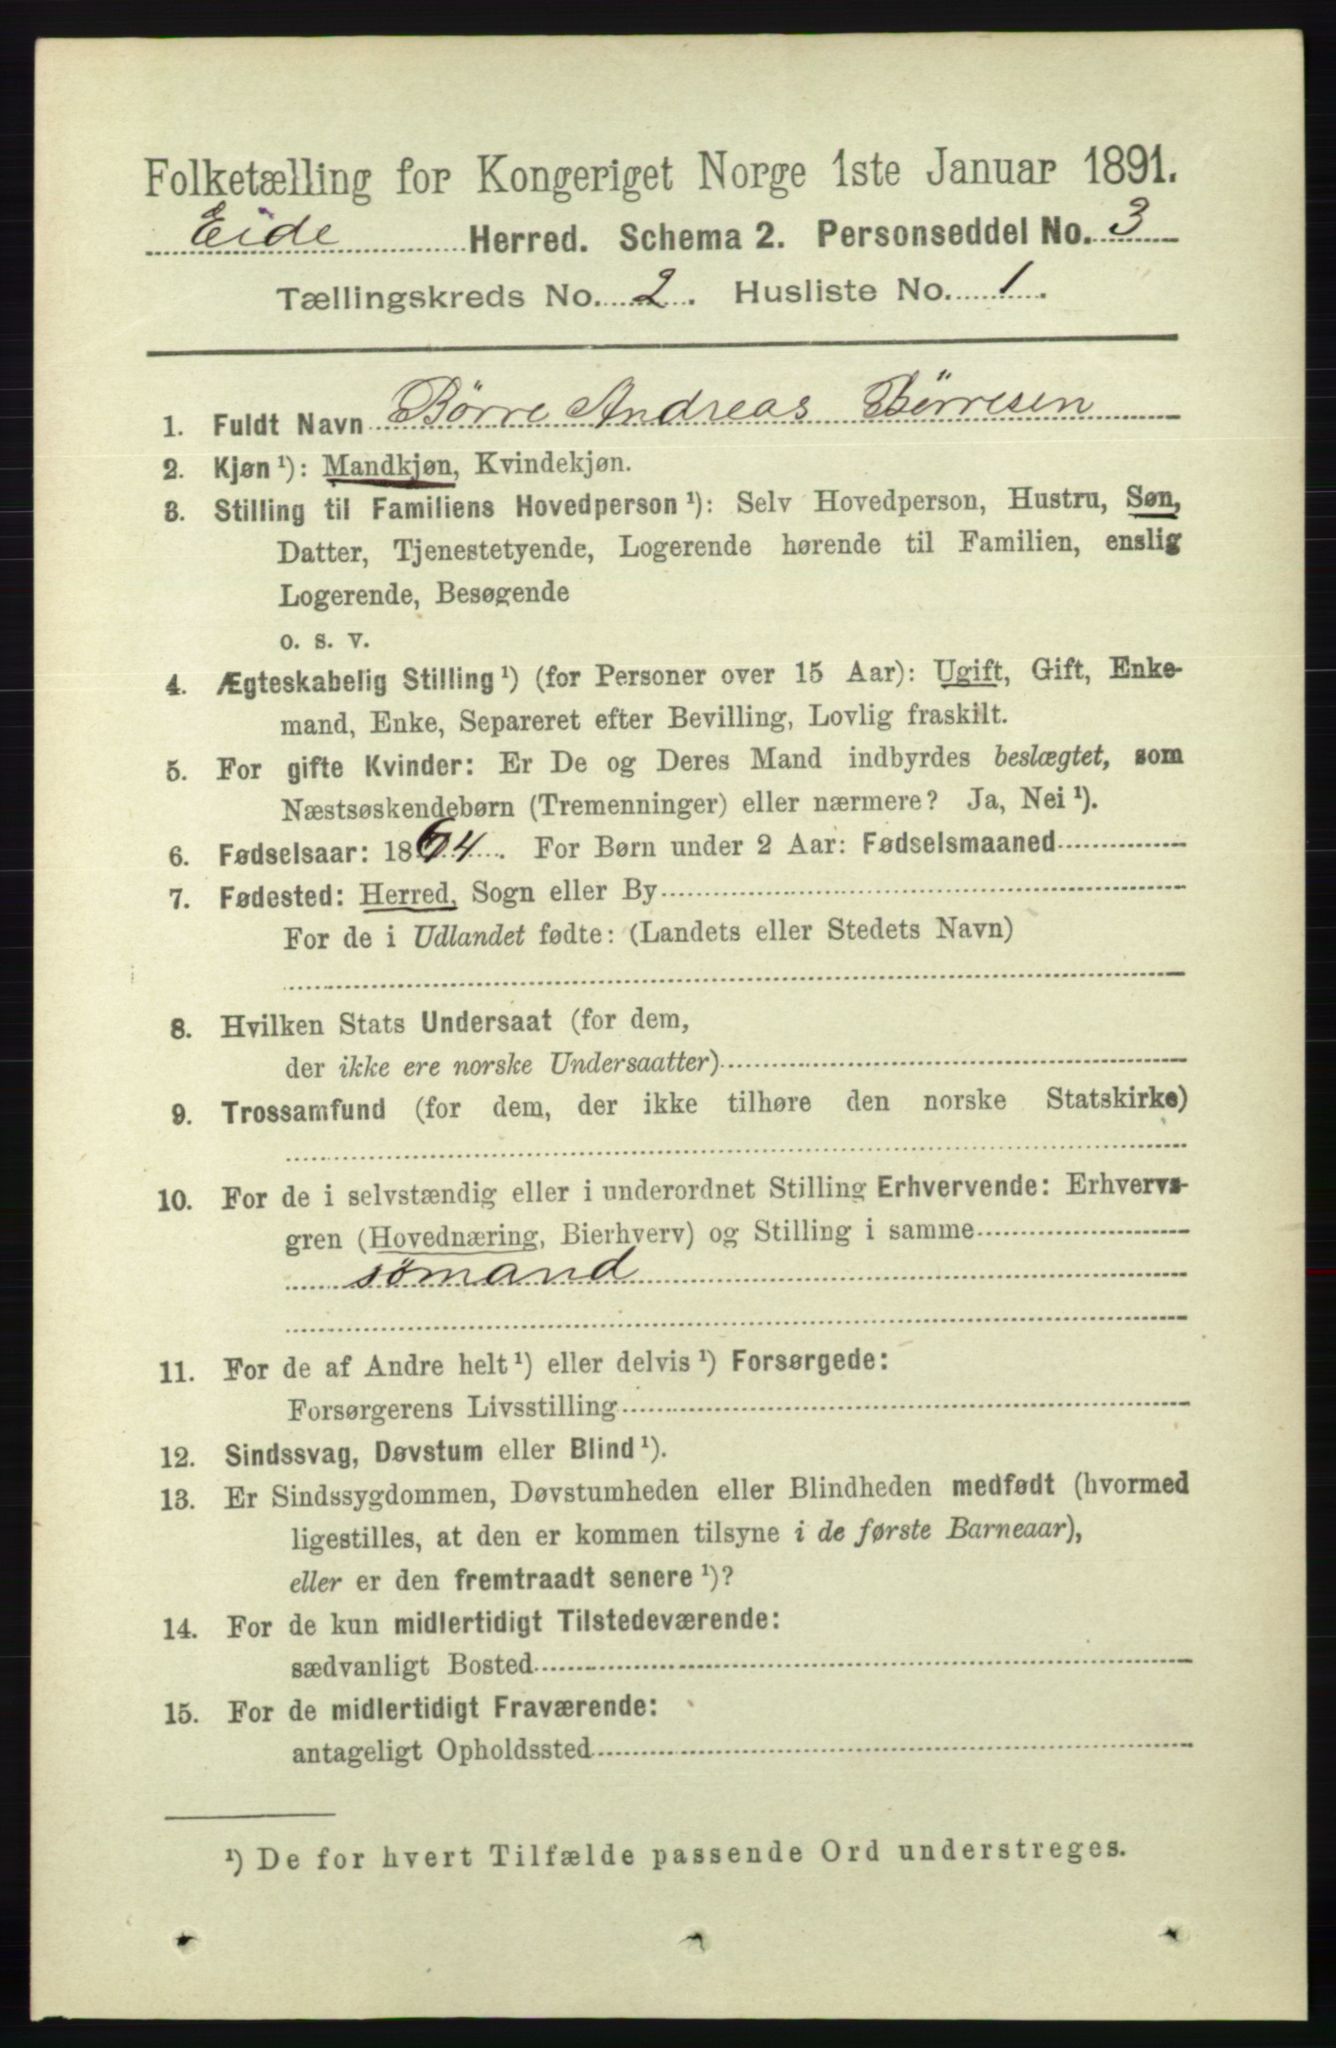 Folketælling for Kongeriget Norge 1ste Januar 1891.
Eide Herred. Schema 2. Personseddel No. 3
Tællingskreds No. 2. Husliste No. 1.
1. Fuldt Navn Børre Andreas Børresen
2. Kjøn ¹): Mandkjøn, Kvindekjøn.
3. Stilling til Familiens Hovedperson ¹): Selv Hovedperson, Hustru, Søn,
Datter, Tjenestetyende, Logerende hørende til Familien, enslig
Logerende, Besøgende
o. s. v.
4. Ægteskabelig Stilling ¹) (for Personer over 15 Aar): Ugift, Gift, Enke-
mand, Enke, Separeret efter Bevilling, Lovlig fraskilt.
5. For gifte Kvinder: Er De og Deres Mand indbyrdes beslægtet, som
Næstsøskendebørn (Tremenninger) eller nærmere? Ja, Nei ¹).
6. Fødselsaar: 1864. For Børn under 2 Aar: Fødselsmaaned
7. Fødested: Herred, Sogn eller By
For de i Udlandet fødte: (Landets eller Stedets Navn)
8. Hvilken Stats Undersaat (for dem,
der ikke ere norske Undersaatter)
9. Trossamfund (for dem, der ikke tilhøre den norske Statskirke)
10. For de i selvstændig eller i underordnet Stilling Erhvervende: Erhvervs-
gren (Hovednæring, Bierhverv) og Stilling i samme
sømand
11. For de af Andre helt ¹) eller delvis ¹) Forsørgede:
Forsørgerens Livsstilling
12. Sindssvag, Døvstum eller Blind ¹).
13. Er Sindssygdommen, Døvstumheden eller Blindheden medfødt (hvormed
ligestilles, at den er kommen tilsyne i de første Barneaar),
eller er den fremtraadt senere ¹)?
14. For de kun midlertidigt Tilstedeværende:
sædvanligt Bosted
15. For de midlertidigt Fraværende:
antageligt Opholdssted
¹) De for hvert Tilfælde passende Ord understreges.